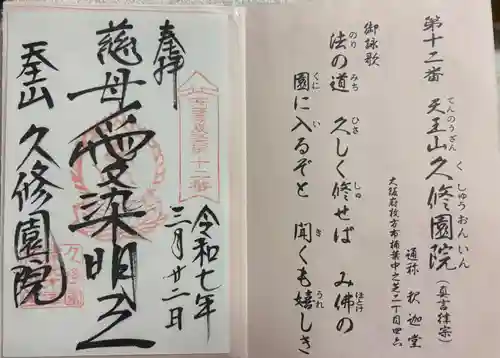 第十二番 天王山久修園院(真言律宗)
てんのうざん くしゅうおんいん
通称 釈迦堂
大阪府枚方市楠葉中之芝二丁目四六
御詠歌
法の道 久しく修せば み佛の
のり みち ひさ しゅ ほとけ
園に入るぞと 聞くも嬉しき
くに い き うれ
奉拝
令和七年
三月廿一日
第十二番
慈母愛染明王
天王山 久修園院